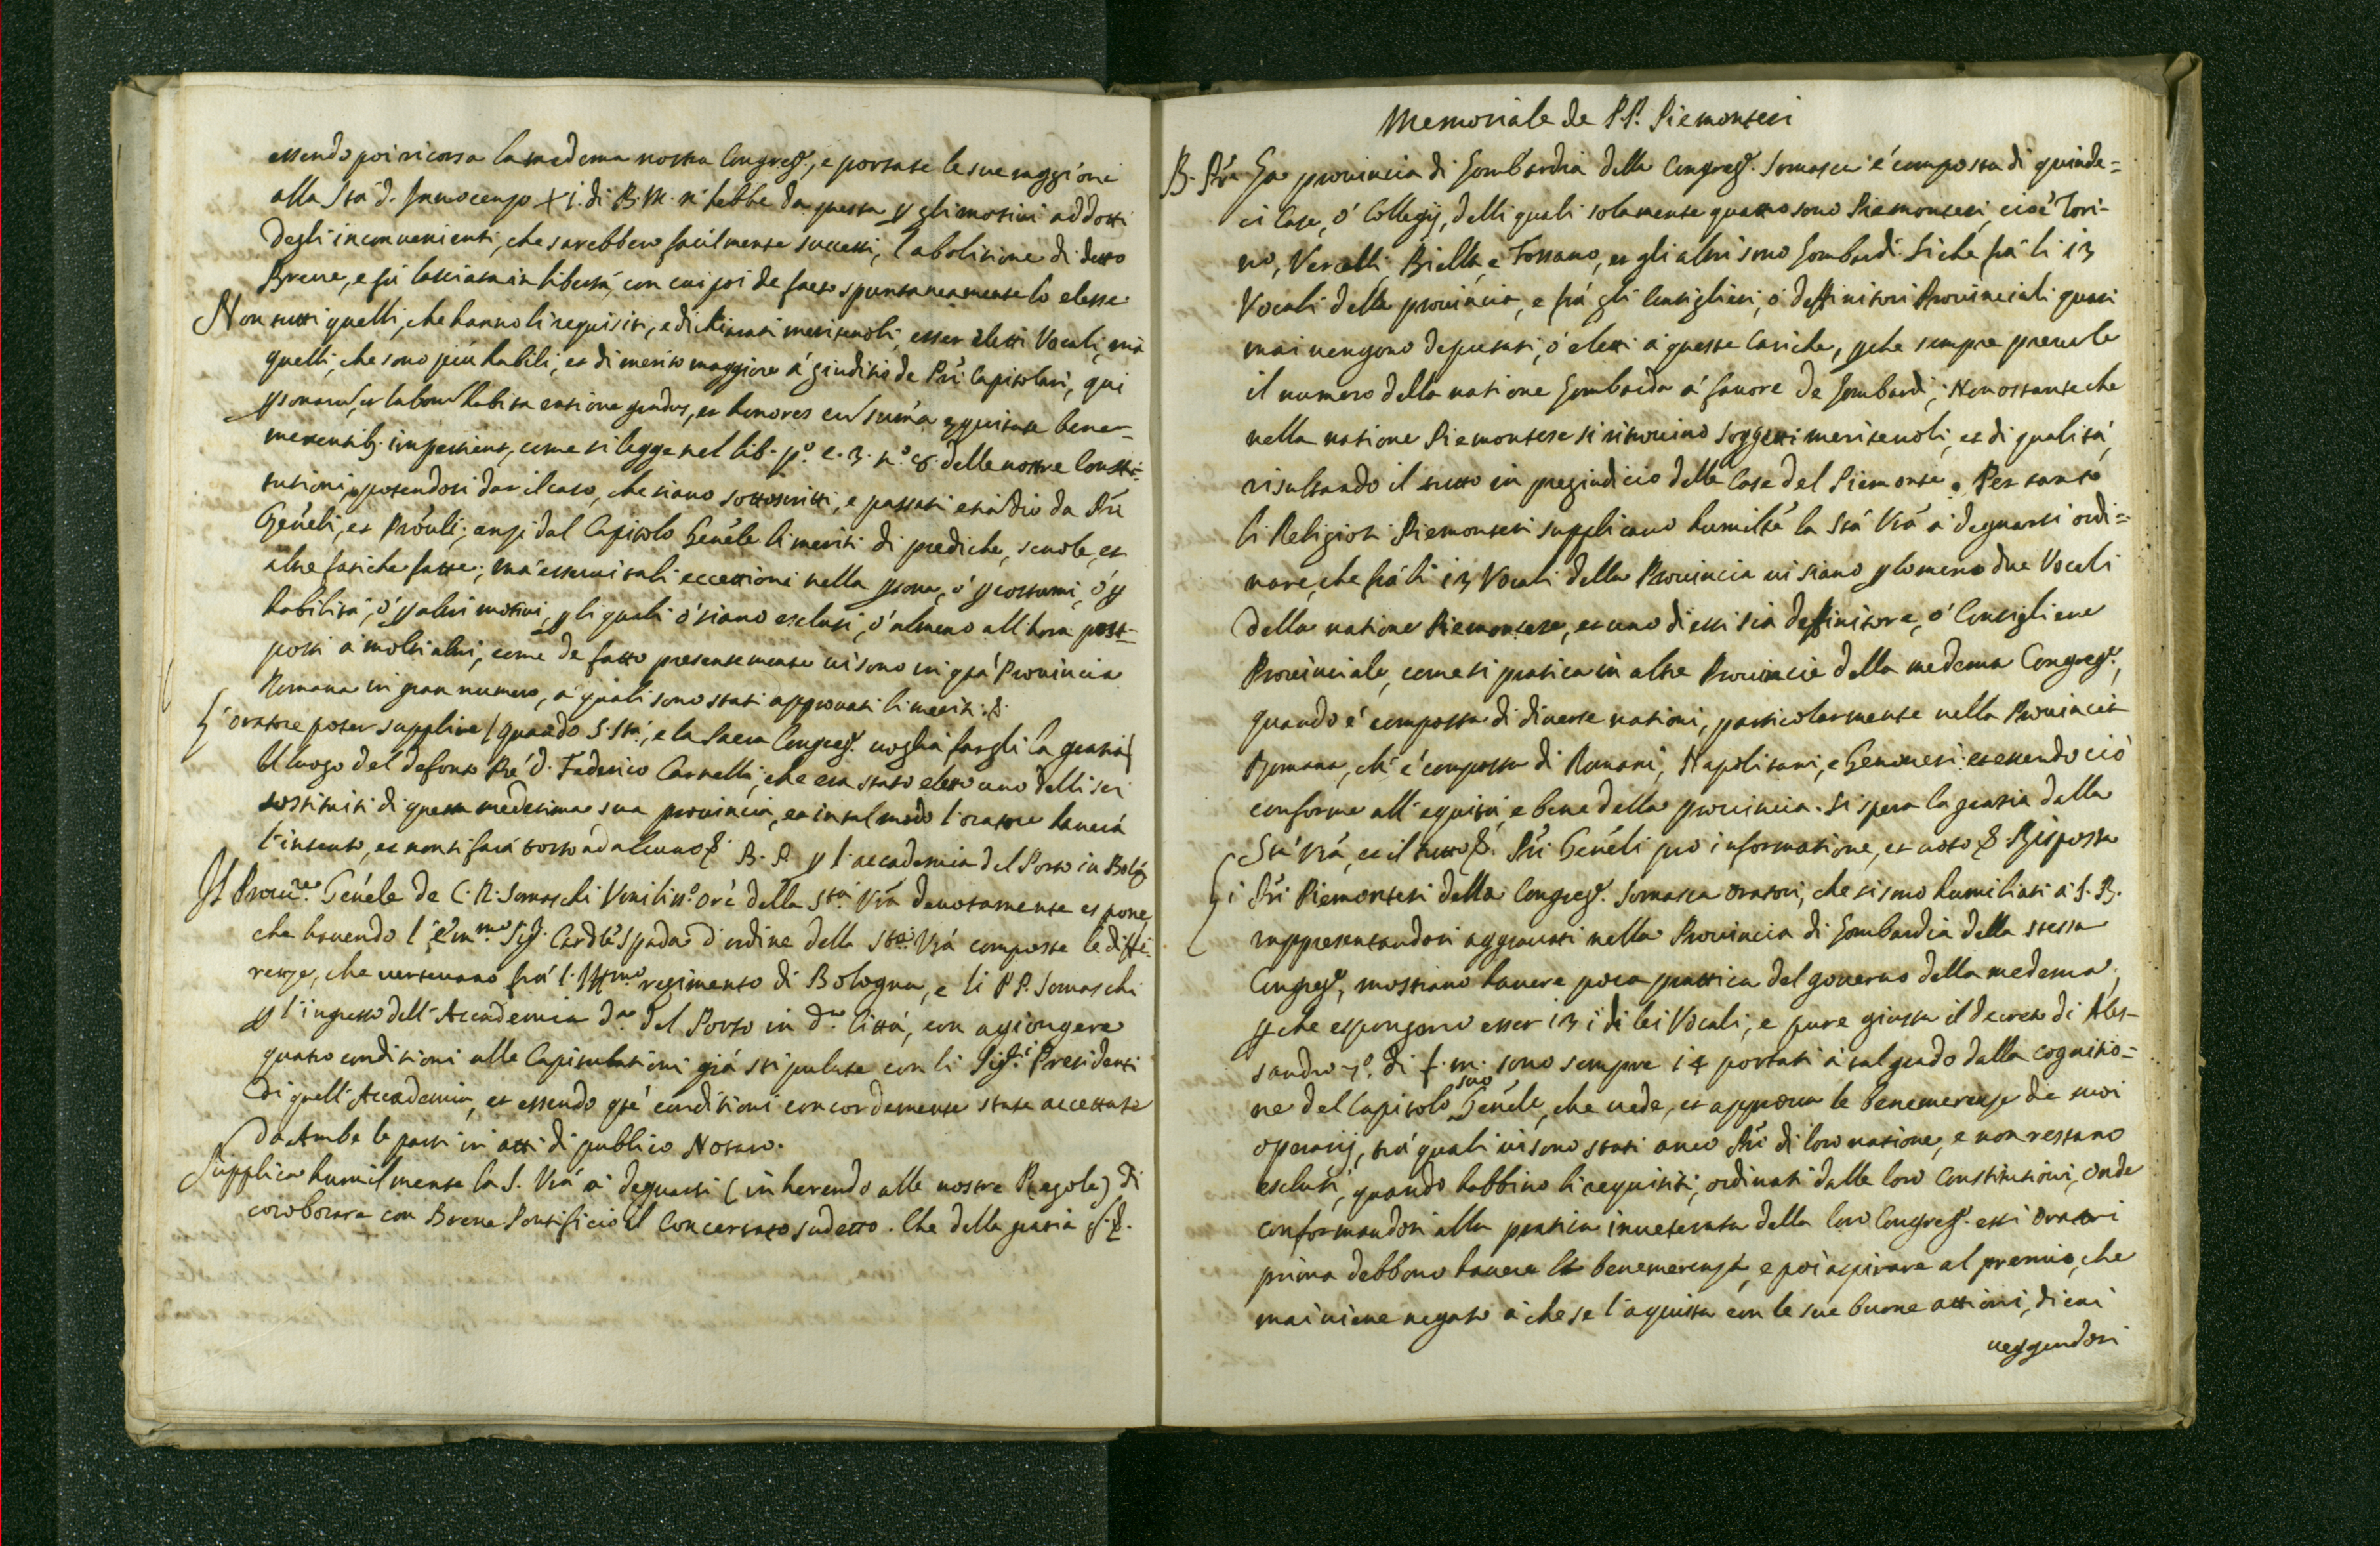 essendo poi ricorsa la medema nostra Congreg.e, e portate le sue raggioni
alla Stà d. Innocenzo XI. di B. M. n'hebbe da questa p gli motivi addotti
degli inconvenienti, che sarebbero facilmente successi, l'abolitione di detto
Breve, e fù lasciata in libertà, con cui poi de facto spontaneamente lo elesse
Non tutti quelli, che hanno li requisiti, e dichiarati meritevoli, esser eletti Vocali, mà
quelli, che sono più habili, et di merito maggiore à giuditio de Pri Capitolari, qui
psonarū, et laborū habita ratione gradus, et honores cū sum̄a aequitate bene-
merentib. impertient, come si legge nel lib. p.º c. 3. n.º 8. delle nostre Consti-
tutioni, potendosi dar il caso, che siano sottoscritti, e passati etiādio da Pri
Gen̄eli, et Prov̄li; anzi dal Capitolo Gen̄ele li meriti di prediche, scuole, et
altre fatiche fatte; mà esservi tali eccettioni nella psona, ò p costumi, ò p
habilità, ò p altri motivi, p li quali ò siano esclusi, ò almeno all'hora post-
posti à molti altri, come de fatto presentemente vi sono in q̄tà Provincia
Romana in gran numero, à quali sono stati approvati li meriti. &.
L'oratore poter supplire (quando S. Stà, e la Sacra Congreg.e voglia fargli la gratia)
Il luogo del defonto Prē D. Federico Carnelli, che era stato eletto uno delli sei
sostituiti di questa medesima sua provincia, et in tal modo l'oratore haverà
l'intento, et non si farà torto ad alcuno &. B. P. p l'accademia del Porto in Bolg.
Il Proc.re Gen̄ele de C. R. Somaschi Umiliss.º or̄e della S.tà V̄rà devotamente espone
che havendo l'Em.mo Sig.r Card̄le Spada d'ordine della S.tà V̄rà composte le diffe-
renze, che vertevano frà l'Ill.mo regimento di Bologna, e li PP. Somaschi
p l'ingresso dell'Accademia d.a del Porto in d.a Città, con agiongere
quatro conditioni alle Capitulationi già stipulate con li Sig.ri Presidenti
di quell'Accademia, et essendo q̄te conditioni concordemente state accettate
da Ambe le parti in atti di publico Notaro.
Supplica humilmente la S. V̄rà à degnarsi (inherendo alle nostre Regole) di
coroborare con Breve Pontificio il Concertato sudetto. Che della gratia &.
Memoriale de PP. Piemontesi
B. Prē La provincia di Lombardia della Congreg.e Somasca è composta di quinde-
ci Case, ò Collegij, delli quali solamente quatro sono Piemontesi, cioè Tori-
no, Vercelli, Biella, e Fossano, et gli altri sono Lombardi. Si che frà li 13
Vocali della provincia, e frà gli Consiglieri, ò deffinitori Provinciali quasi
mai vengono deputati, ò eletti à queste Cariche, p che sempre prevale
il numero della natione Lombarda à favore de Lombardi; Non ostante che
nella natione Piemontese si ritrovino soggetti meritevoli, et di qualità,
risultando il tutto in pregiudicio delle Case del Piemonte. Per tanto
li Religiosi Piemontesi supplicano humilt̄e la Stà V̄rà à degnarsi ordi-
nare, che frà li 13 Vocali della Provincia vi siano p lo meno due Vocali
della natione Piemontese, et uno di essi sia deffinitore, ò Consigliere
Provinciale, come si pratica in altre Provincie della medema Congreg.e,
quando è composta di diverse nationi, particolarmente nella Provincia
Romana, ch'è composta di Romani, Napolitani, e Genovesi: et essendo ciò
conforme all'equità, e bene della provincia. Si spera la gratia dalla
Stà V̄rà, et il tutto &. Pri Gen̄eli pro informatione, et voto &. Risposta
Li Pri Piemontesi della Congreg.e Somasca oratori, che si sono humiliati à S. B.
rappresentandosi aggravati nella Provincia di Lombardia della stessa
Congreg.e, mostrano havere poca prattica del governo della medema,
p che espongono esser 13 i di lei Vocali, e pure giusta il decreto di Ales-
sandro 7.º di f. m. sono sempre 14 portati à tal grado dalla cognitio-
ne del Capitolo suo Gen̄ele, che vede, et approva le benemerenze de suoi
operarij, trà quali vi sono stati anco Pri di loro natione, e non restano
esclusi, quando habbino li requisiti, ordinati dalle loro Constitutioni, onde
conformandosi alla pratica inveterata della loro Congreg.e essi oratori
prima debbono havere la benemerenza, e poi aspirare al premio, che
mai viene negato à che se l'aquista con le sue buone attioni, di cui
veggendosi